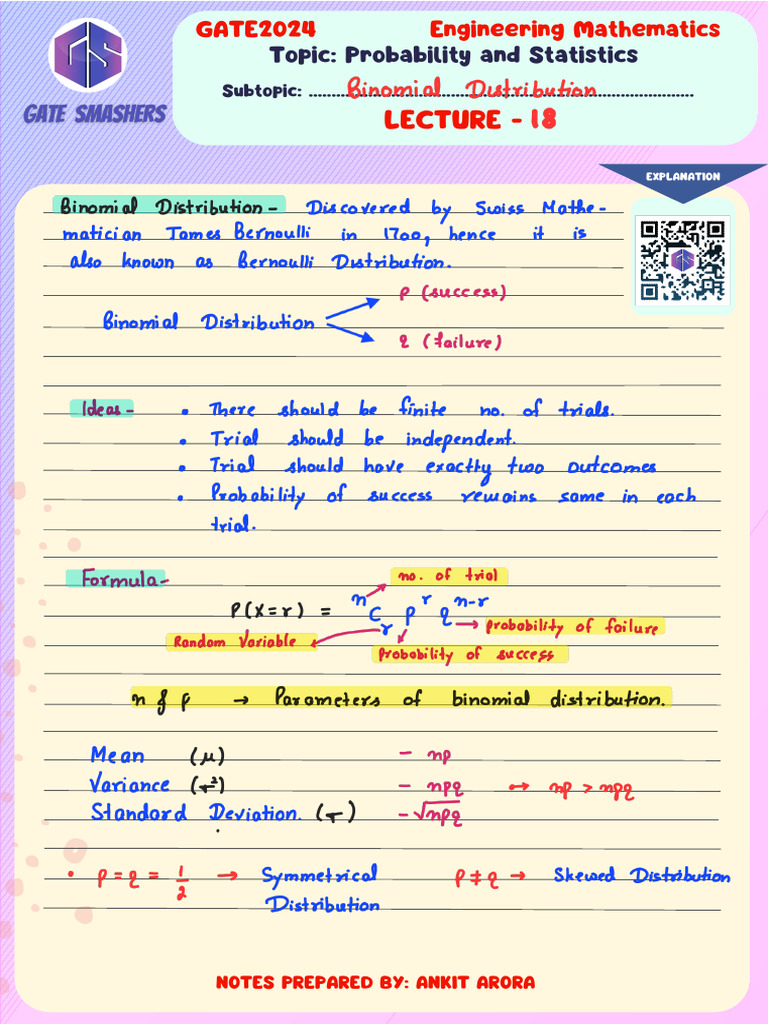 GATE2024 Engineering Mathematics
Topic: Probability and Statistics
Subtopic: Binomial Distribution
LECTURE - 18
GS
GATE SMASHERS
EXPLANATION
Binomial Distribution - Discovered by Swiss Mathe-
matician James Bernoulli in 1700, hence it is
also known as Bernoulli Distribution.
p (success)
Binomial Distribution
q (failure)
Ideas - • There should be finite no. of trials.
• Trial should be independent.
• Trial should have exactly two outcomes
• Probability of success remains same in each
trial.
Formula -
no. of trial
P(X=r) = ⁿCᵣ pʳ qⁿ⁻ʳ
probability of failure
Random Variable
Probability of success
n & p → Parameters of binomial distribution.
Mean (μ) - np
Variance (σ²) - npq ↦ np > npq
Standard Deviation. (σ) - √npq
• p = q = 1/2 → Symmetrical p ≠ q → Skewed Distribution
Distribution
NOTES PREPARED BY: ANKIT ARORA